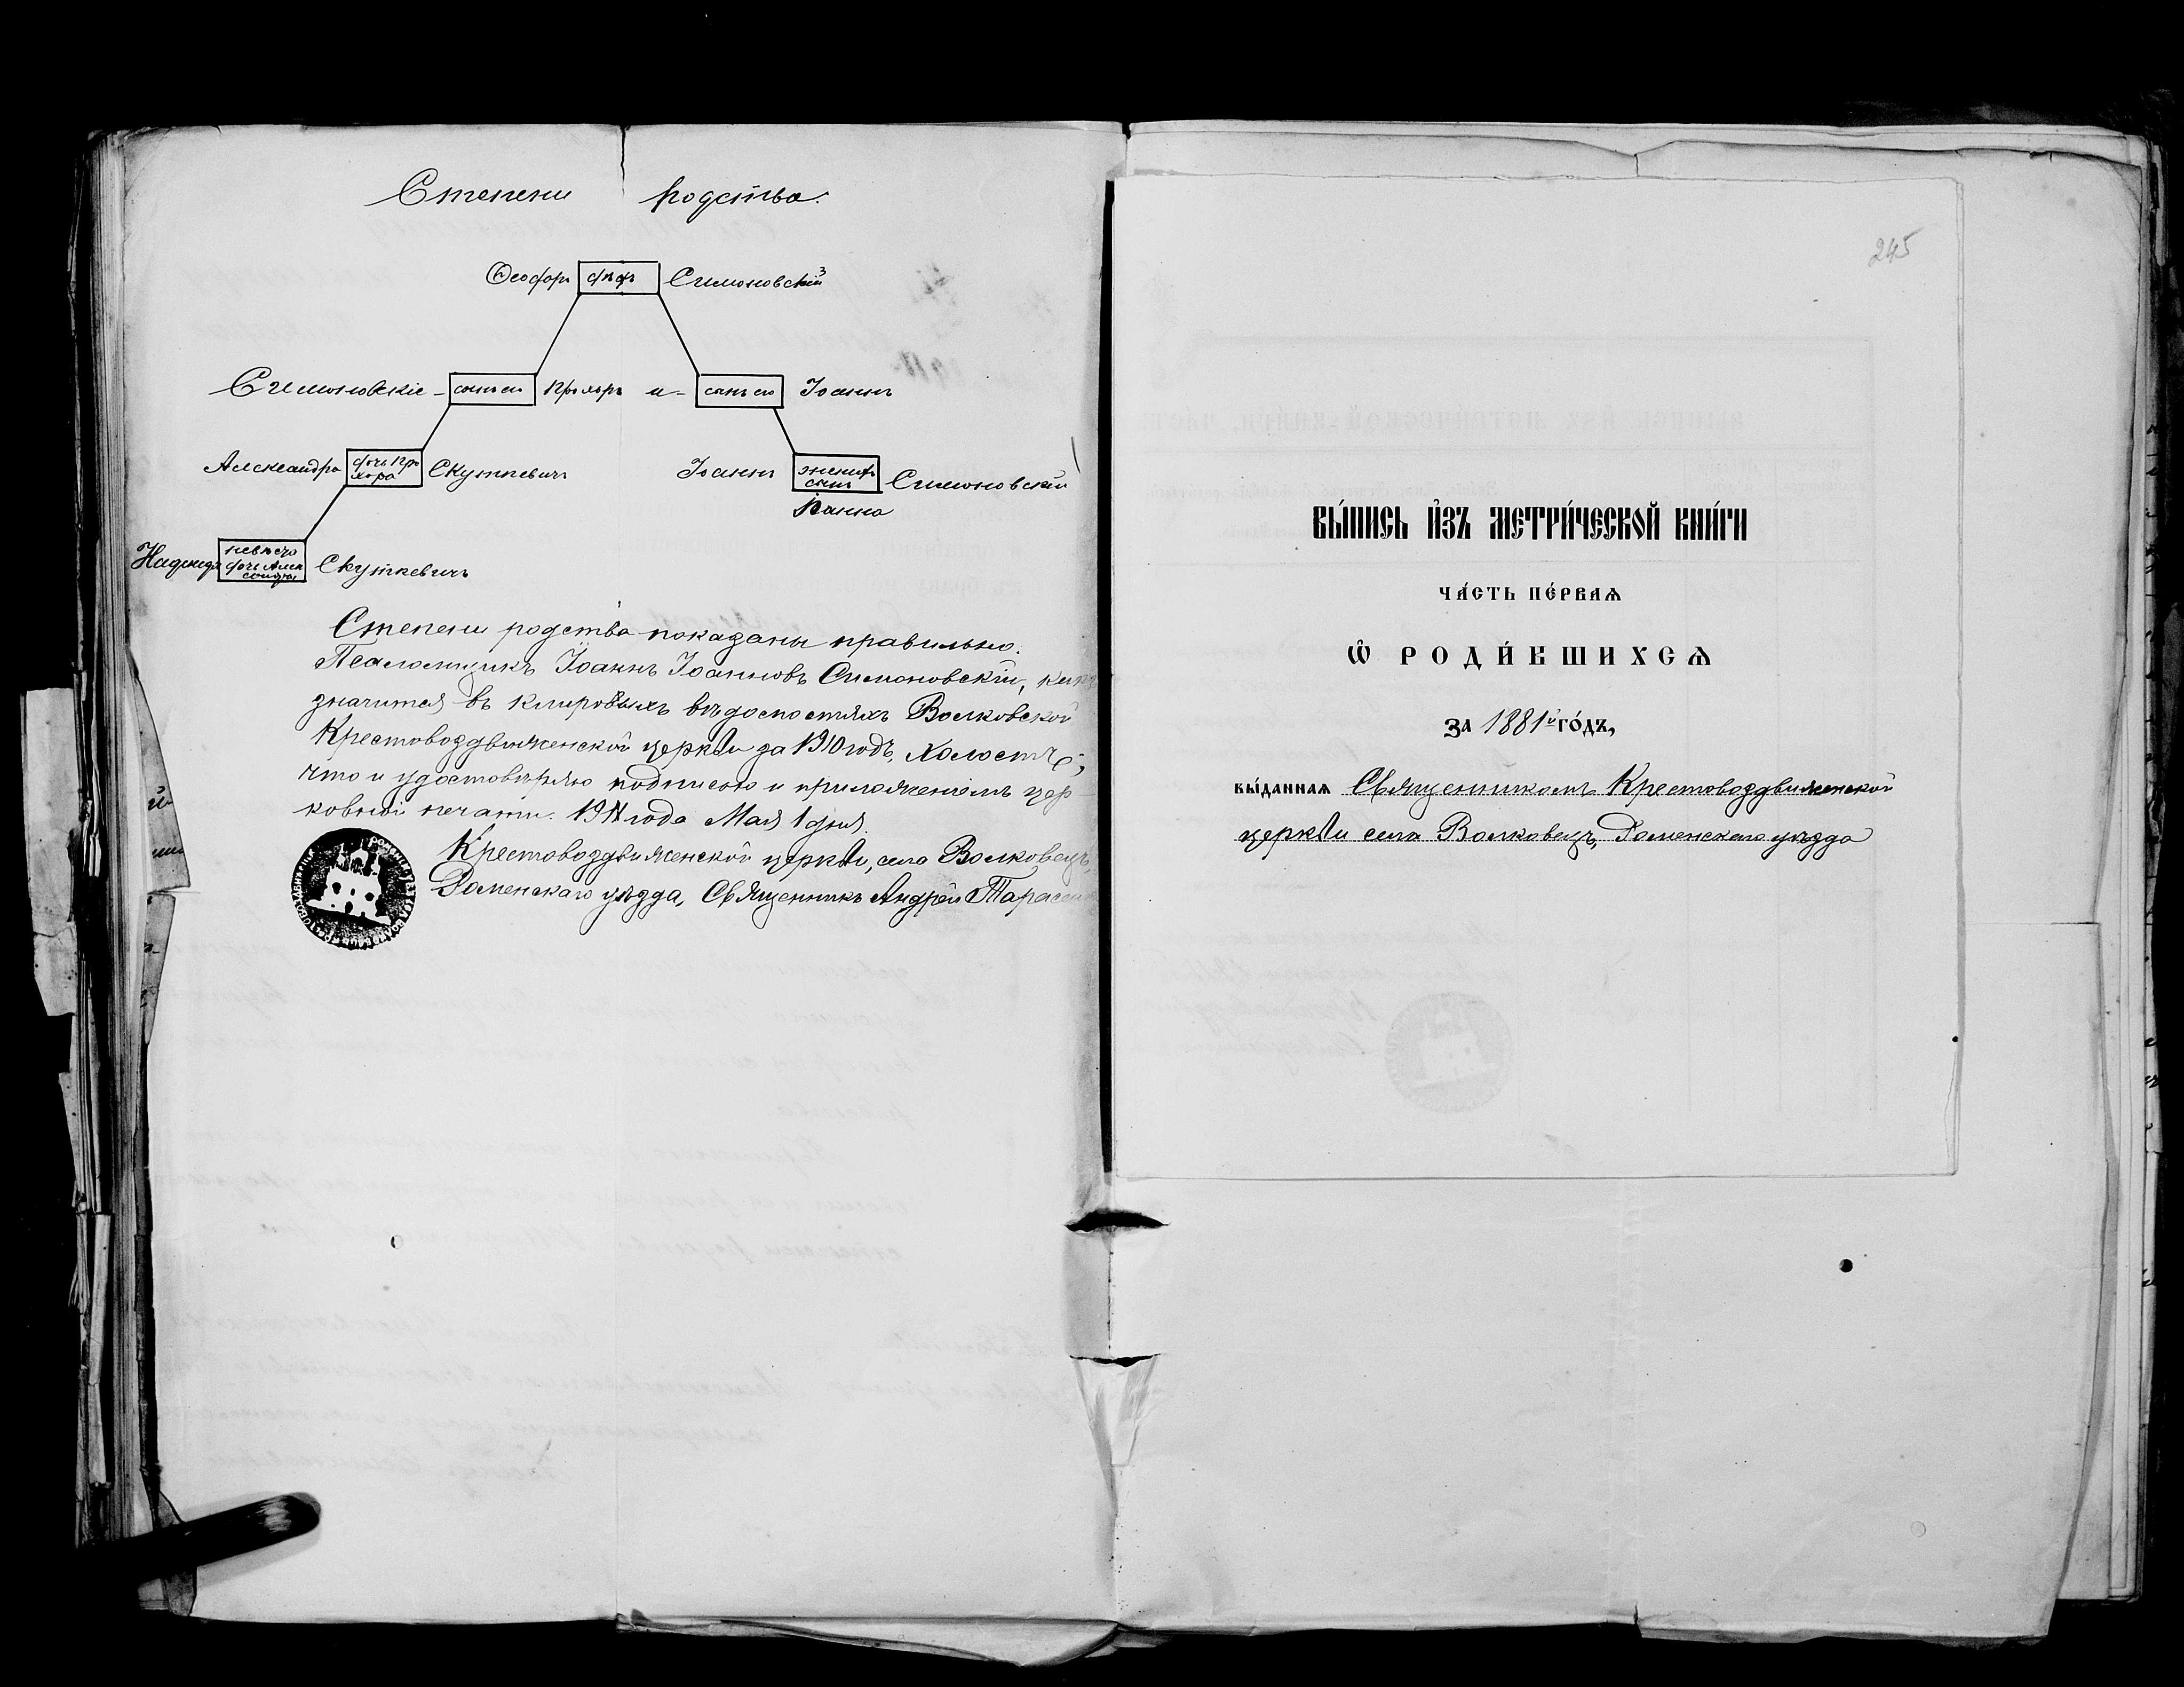 Степени родства.
Ѳеофоръ дѣдъ Симоновскій
Симоновскіе - сынъ его Прохоръ и - сынъ его Іоаннъ
Александра дочь Про
хора Скуткевичъ
Іоаннъ женихъ
сынъ Симоновскій
Іоанна
Надежда невѣста
дочь Алек
сандры Скуткевичъ
Степени родства показаны правильно.
Псаломщикъ Іоаннъ Іоанновъ Симоновскій, какъ
значится въ клировыхъ вѣдомостяхъ Волковской
Крестовоздвиженской церкви за 1910 годъ, холостъ,
что и удостовѣряю подписью и приложеніемъ цер-
ковной печати. 1911 года Мая 1 дня.
Крестовоздвиженской церкви, села Волковецъ,
Роменскаго уѣзда, Священникъ Андрей
245
ВЫ́ПИСЬ И҆ЗЪ МЕТРИ́ЧЕСКОЙ КНИ́ГИ
ЧА́СТЬ ПЕ́РВАѦ
Ѽ РОДИ́ВШИХСѦ
ЗА 1881й ГО́ДЪ,
ВЫ́ДАННАѦ Священникомъ Крестовоздвиженской
церкви села Волковецъ, Роменскаго уѣзда